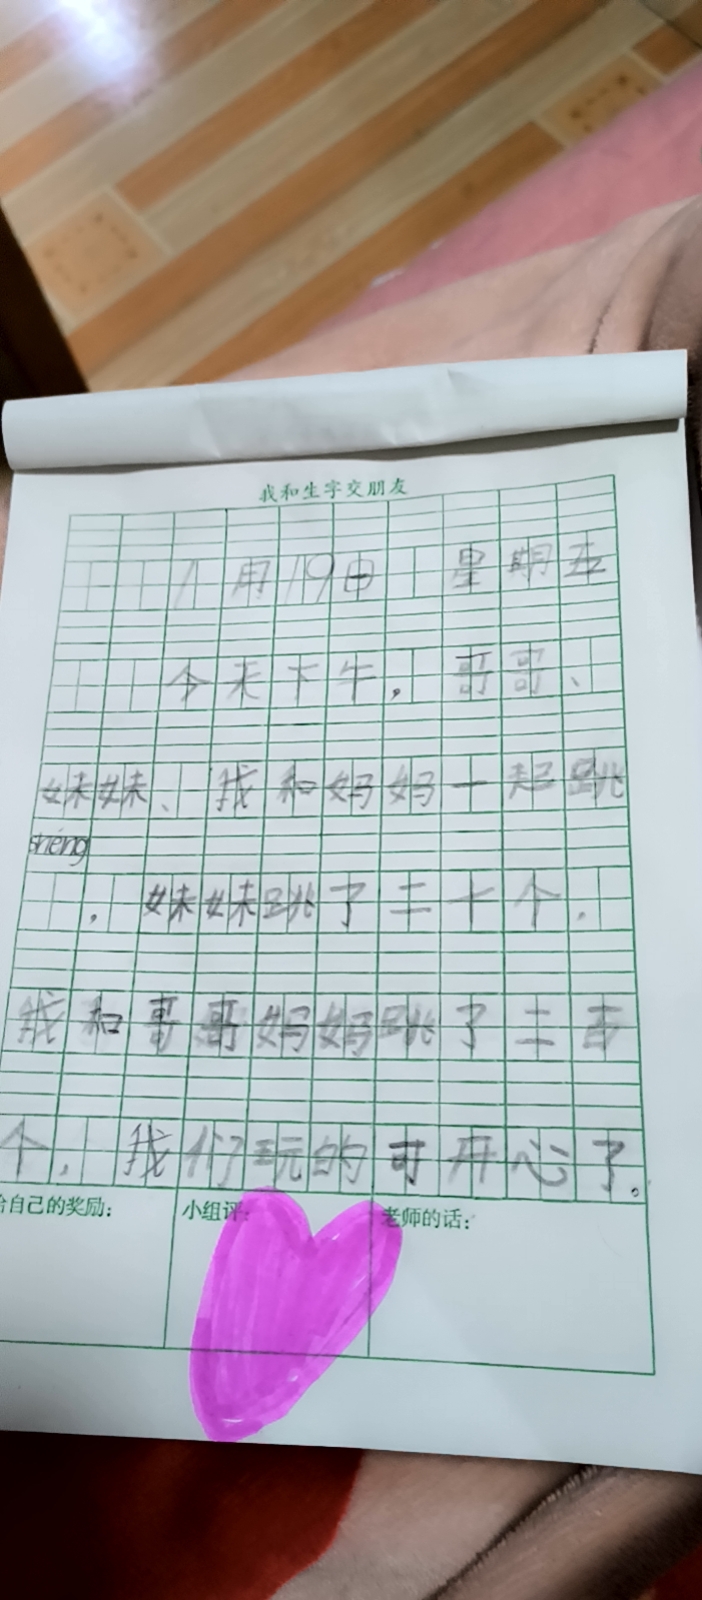 我和生字交朋友
1月19日 星期五
今天下午，哥哥、
妹妹、我和妈妈一起跳
shéng
，妹妹跳了二十个，
我和哥哥妈妈跳了二百
个，我们玩的可开心了。
给自己的奖励： 小组评： 老师的话：